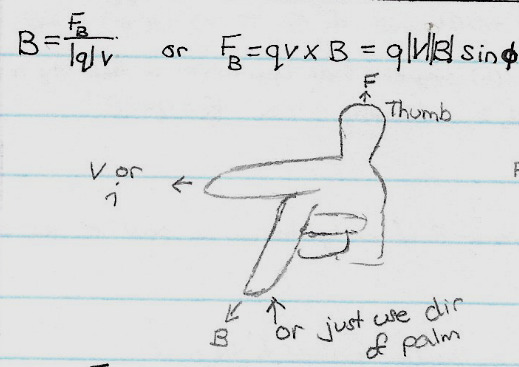 B = F_B / |q|v or F_B = qv x B = q|V||B| sinϕ
F
Thumb
V or
i
B
or just use dir
of palm